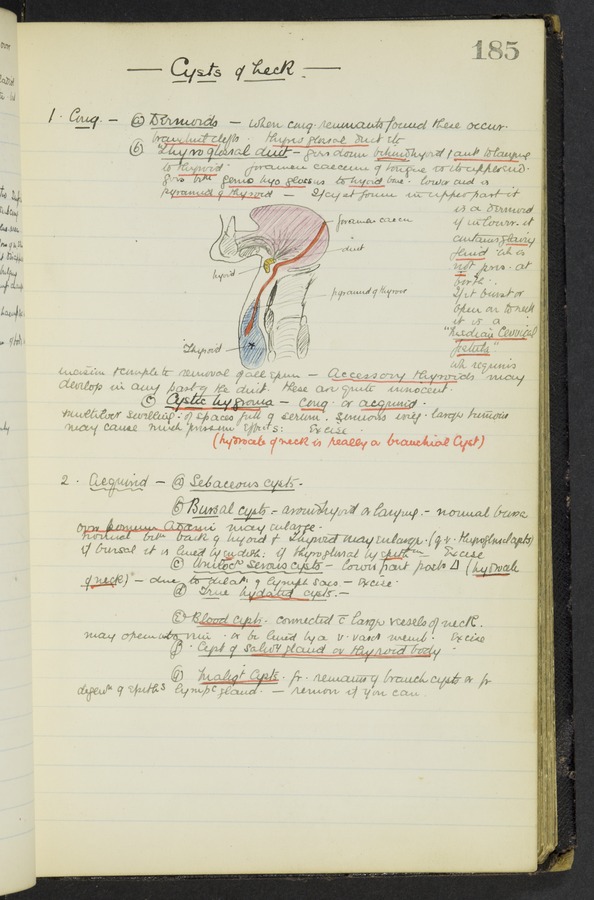 185
Cysts of neck.
1. Cong. - (a) Dermoids - when cong. remnants found these occur.
branchial clefts. thyro glossal duct etc
(b) Thyroglossal duct - goes down behind hyoid & ant to larynx
to thyroid. foramen caecum of tongue is its upper end.
goes btn genio hyo glossus to hyoid bone. lower end is
pyramid of thyroid - If cyst forms in upper part it
is a dermoid
if in lower it
contains glairy
fluid wh is
not pres. at
birth.
If it burst or
open on to neck
it is a
"Median Cervical
fistula"
wh requires
foramen caecum
duct
hyoid
pyramid of thyroid
Thyroid
incision & complete removal of all epm - Accessory thyroids may
develop in any part of the duct. these are quite innocent.
(c) Cystic hygroma - cong. or acquired.
multilocr swelling - of spaces full of serum. Serious . large tumours
may cause much pressure effects: Excise.
(hydrocele of neck is really a branchial Cyst)
2. Acquired - (a) Sebaceous cysts.
(b) Bursal cysts - around hyoid or larynx. - normal bursa
over pomum Adami may enlarge.
normal btn back of hyoid & thyroid may enlarge. (q.v. thyroglossal cysts)
if bursal it is lined by endoth: if thyroglossal by epithm Excise
(c) Uniloc. Serous cysts - lower part post Δ (hydrocele
of neck) - due to dilatn of lymph sacs - Excise.
(d) True hydatid cysts. -
(e) Blood cysts. connected c̄ large vessels of neck.
may open into vein. or be lined by a v. vasc memb. Excise
(f). Cyst of saliv gland or thyroid body.
(g) Maligt Cysts. fr. remains of branch cysts or fr
degenn of epiths lympc gland. - remove if you can